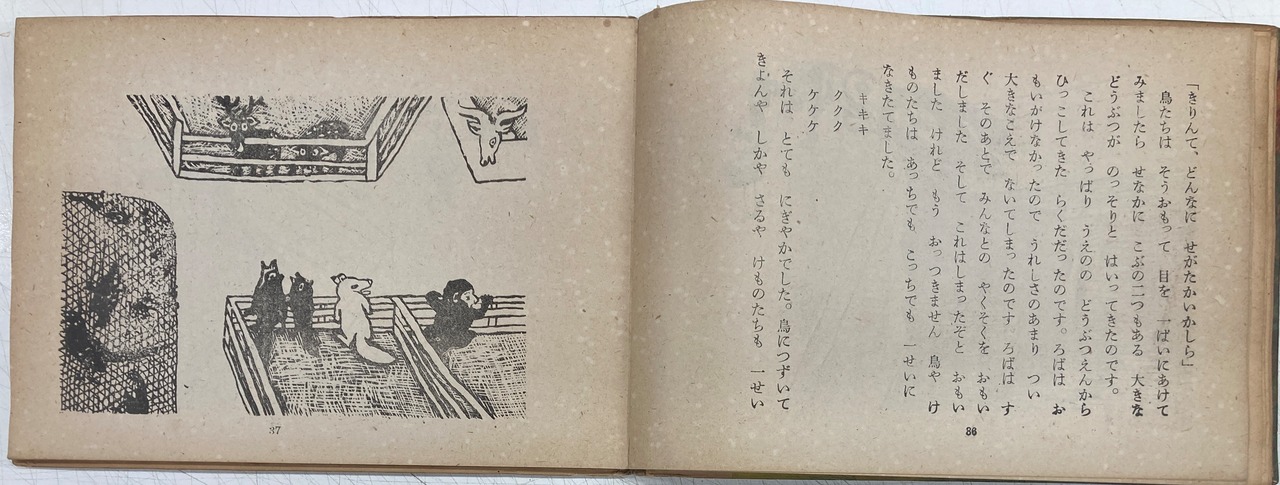 「きりんて、どんなに　せがたかいかしら」
鳥たちは　そうおもって　目を　一ぱいにあけて
みましたら　せなかに　こぶの二つもある　大きな
どうぶつが　のっそりと　はいってきたのです。
これは　やっぱり　うえのの　どうぶつえんから
ひっこしてきた　らくだだったのです。ろばは　お
もいがけなかったので　うれしさのあまり　つい
大きなこえで　ないてしまったのです　ろばは　す
ぐ　そのあとで　みんなとの　やくそくを　おもい
だしました　そして　これはしまったぞと　おもい
ました　けれど　もう　おっつきません　鳥や　け
ものたちは　あっちでも　こっちでも　一せいに
なきたてました。
キキキ
ククク
ケケケ
それは　とても　にぎやかでした。鳥につずいて
きょんや　しかや　さるや　けものたちも　一せい
36
37